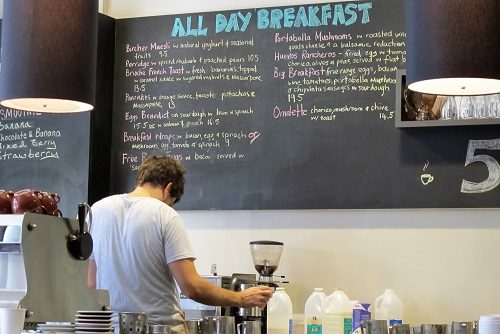 ALL DAY BREAKFAST
Bircher Muesli w natural yoghurt & seasonal
fruits 9.5
Porridge w spiced rhubarb & poached pears 10.5
Brioche French Toast w fresh bananas, topped
w caramel sauce w sugared walnuts & mascarpone
13.5
Pancakes w orange sauce, toasted pistachios &
Mascarpone 13
Eggs Benedict on sourdough w ham & spinach
15.5 or w salmon & spinach 16.5
Breakfast Wraps w bacon egg & spinach or
mushrooms, egg, tomato & spinach 9
Free eggs w bacon served w
Portabella Mushrooms w roasted vine
goats cheese & a balsamic reduction
Huevos Rancheros - fried eggs w tomato
chorizo, olives & peas, served w bread
Big Breakfast free range eggs, bacon
vine tomatoes, portobello Mushrooms
& chipolata sausages w sourdough
19.5
Omelette chorizo, mushroom & chive
w toast 14.5
SMOOTHIES
Banana
Chocolate & Banana
Mixed Berry
Strawberry
5